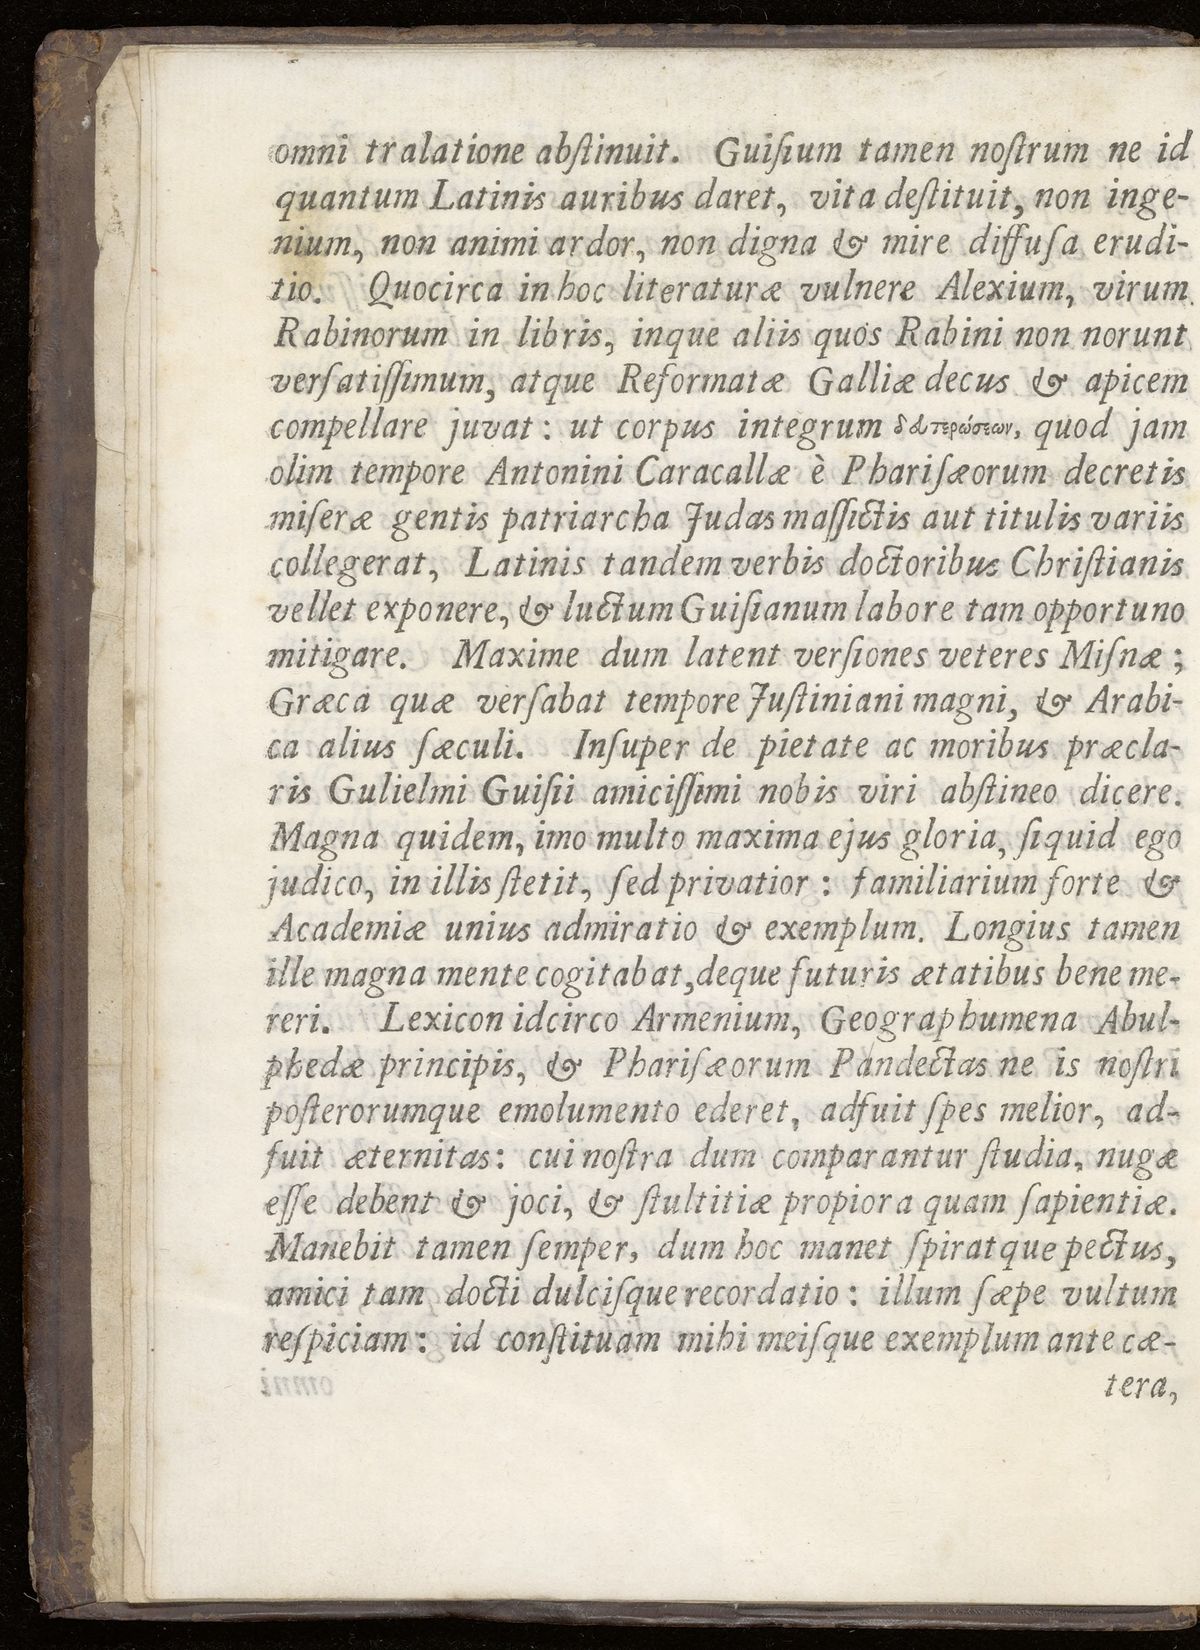 omni tralatione abſtinuit. Guiſium tamen noſtrum ne id
quantum Latinis auribus daret, vita deſtituit, non inge-
nium, non animi ardor, non digna & mire diffuſa erudi-
tio. Quocirca in hoc literaturæ vulnere Alexium, virum
Rabinorum in libris, inque aliis quos Rabini non norunt
verſatiſſimum, atque Reformatæ Galliæ decus & apicem
compellare juvat: ut corpus integrum quod jam
olim tempore Antonini Caracallæ è Phariſæorum decretis
miſeræ gentis patriarcha Judas maſſictis aut titulis variis
collegerat, Latinis tandem verbis doctoribus Chriſtianis
vellet exponere, & luctum Guiſianum labore tam opportuno
mitigare. Maxime dum latent verſiones veteres Miſnæ;
Græca quæ verſabat tempore Juſtiniani magni, & Arabi-
ca alius ſæculi. Inſuper de pietate ac moribus præcla-
ris Gulielmi Guiſii amiciſſimi nobis viri abſtineo dicere.
Magna quidem, imo multo maxima ejus gloria, ſiquid ego
judico, in illis ſtetit, ſed privatior: familiarium forte &
Academiæ unius admiratio & exemplum. Longius tamen
ille magna mente cogitabat, deque futuris ætatibus bene me-
reri. Lexicon idcirco Armenium, Geographumena Abul-
phedæ principis, & Phariſæorum Pandectas ne is noſtri
poſterorumque emolumento ederet, adfuit ſpes melior, ad-
fuit æternitas: cui noſtra dum comparantur ſtudia, nugæ
eſſe debent & joci, & ſtultitiæ propiora quam ſapientiæ.
Manebit tamen ſemper, dum hoc manet ſpiratque pectus,
amici tam docti dulciſque recordatio: illum ſæpe vultum
reſpiciam: id conſtituam mihi meiſque exemplum ante cæ-
tera,